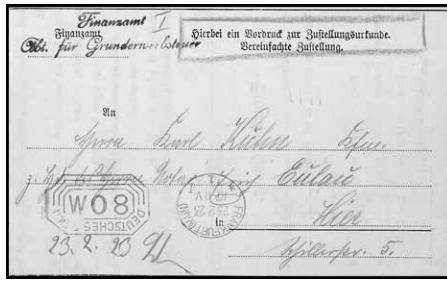 Finanzamt I
Finanzamt
Abt. für Grunderwerbsteuer
Hierbei ein Vordruck zur Zustellungsurkunde.
Vereinfachte Zustellung.
An
Herrn Karl Kuhn Kfm.
z. Hd. Herrn Notar Eulau
in Hier
Schillerstr. 5.
DEUTSCHES
8 0 M
FRANKFURT (MAIN)
23. 2. 23